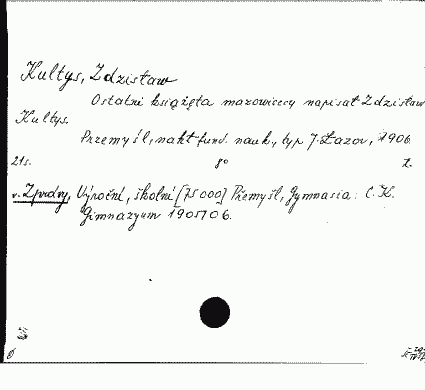 Kultys, Zdzisław
Ostatni książęta mazowieccy napisał Zdzisław
Kultys.
Przemyśl, nakł. fund. nauk., typ J. Łazov, 1906.
21s. 8°
v. Zprávy, Výroční, školní [75000] Přemyśl, Gymnasia: C. K.
Gimnazyum 1905/06.